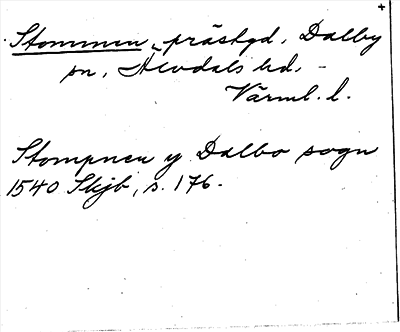 +
Stommen, prästgd, Dalby
sn, Älvdals hd.
Värml. l.
Stompnen y Dalbo sogn
1540 Skjb, s. 176.